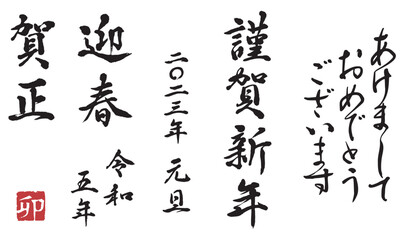 あけまして
おめでとう
ございます
謹賀新年
二〇二三年 元旦
迎春
令和
五年
賀正
卯